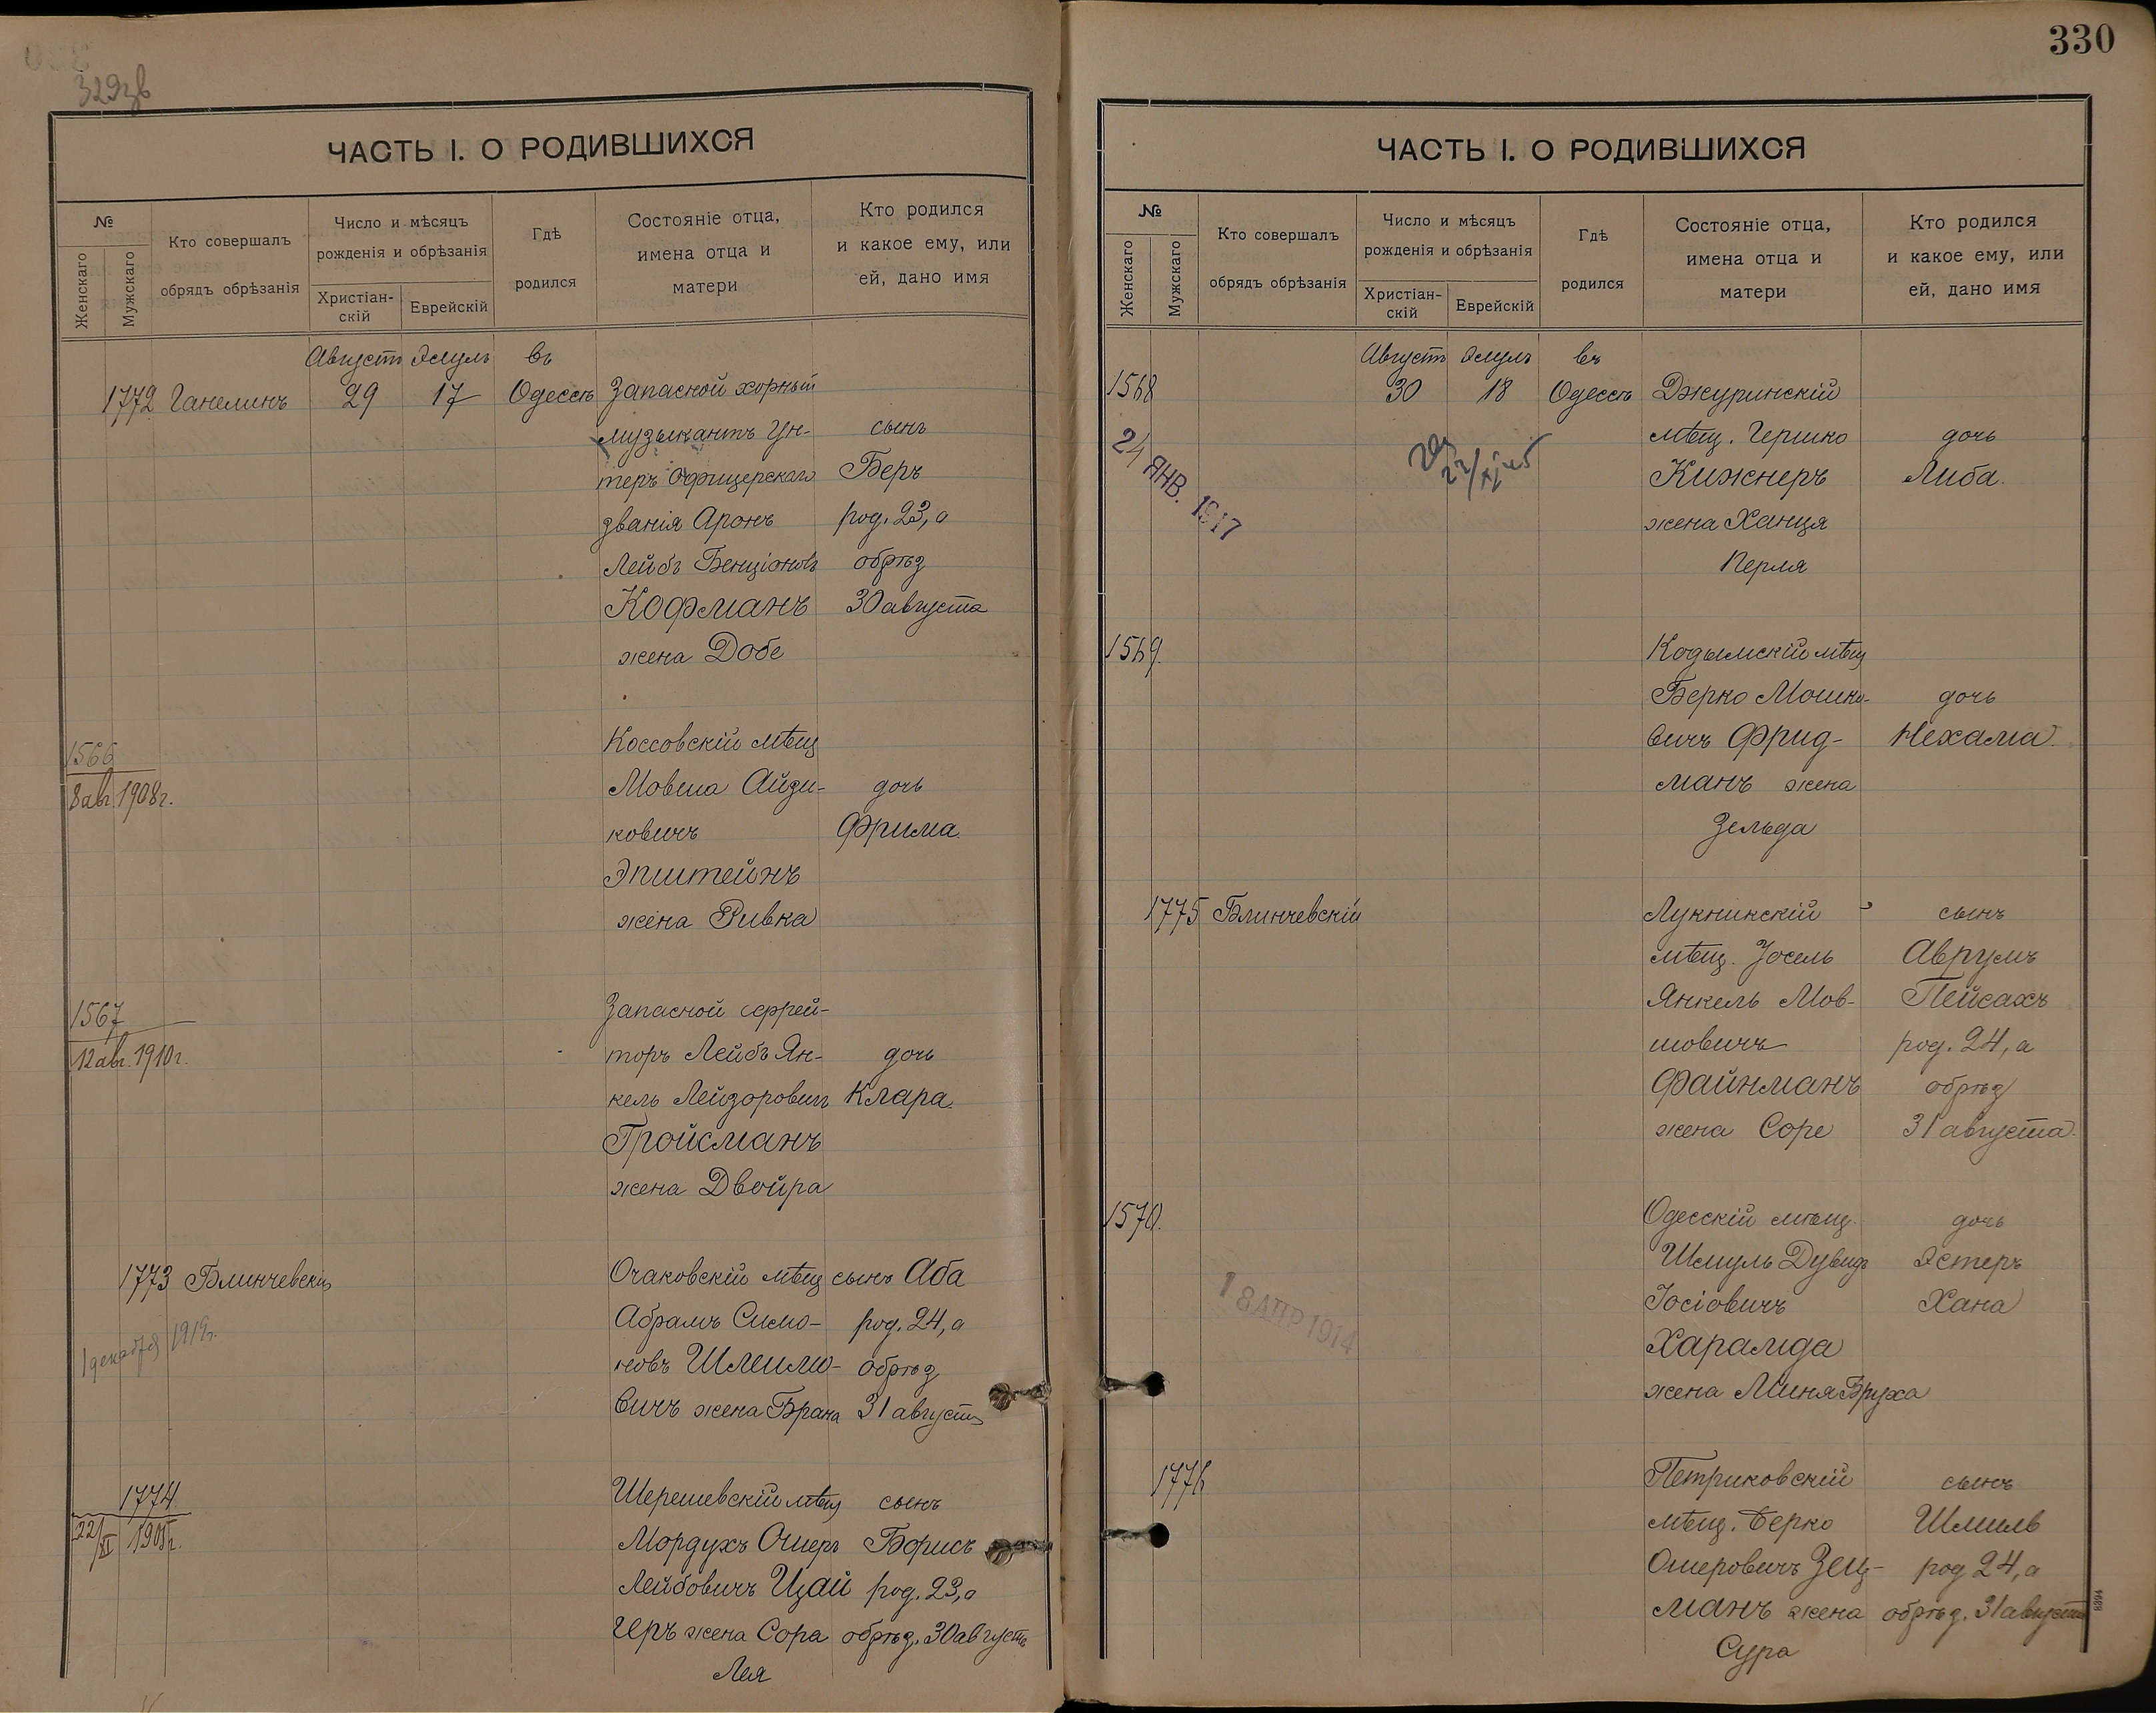 329зв
ЧАСТЬ I. О РОДИВШИХСЯ
№
Женскаго
Мужскаго
Кто совершалъ
обрядъ обрѣзанія
Число и мѣсяцъ
рожденія и обрѣзанія
Христіан-
скій
Еврейскій
Гдѣ
родился
Состояніе отца,
имена отца и
матери
Кто родился
и какое ему, или
ей, дано имя
Августъ Элулъ въ
1772 Ганелинъ 29 17 Одессѣ Запасной хорный
музыкантъ Ун- сынъ
теръ Офицерскаго Беръ
званія Аронъ род. 23, а
Лейбъ Бенціоновъ обрѣз
Кофманъ 30 августа
жена Добе
1566 Коссовскій мѣщ
8 авг 1908 г. Мовша Айзи- дочь
ковичъ Фрима.
Эпштейнъ
жена Ривка
1567 Запасной ефрей-
12 авг. 1910 г. торъ Лейбъ Ян- дочь
кель Лейзоровичъ Клара.
Гройсманъ
жена Двойра
1773 Блинчевскій Очаковскій мѣщ сынъ Аба
1 декабря 1919 г. Абрамъ Симо- род. 24, а
новъ Шлеймо- обрѣз
вичъ жена Брана 31 августа
1774 Шерешевскій мѣщ сынъ
22/XI 1905 г. Мордухъ Ошеръ Борисъ
Лейбовичъ Цай род. 23, а
геръ жена Сора обрѣз. 30 августа
Лея
330
ЧАСТЬ I. О РОДИВШИХСЯ
№
Женскаго
Мужскаго
Кто совершалъ
обрядъ обрѣзанія
Число и мѣсяцъ
рожденія и обрѣзанія
Христіан-
скій
Еврейскій
Гдѣ
родился
Состояніе отца,
имена отца и
матери
Кто родился
и какое ему, или
ей, дано имя
Августъ Элулъ въ
1568 30 18 Одессѣ Джуринскій
24 ЯНВ. 1917 мѣщ. Гершко дочь
Кижнеръ Либа.
жена Ханця
Перля
1569. Кодымскій мѣщ
Берко Мошко- дочь
вичъ Фрид- Нехама.
манъ жена
Зельда
1775 Блинчевскій Лукнинскій сынъ
мѣщ. Іосель Аврумъ
Янкель Мов- Пейсахъ
шовичъ род. 24, а
Файнманъ обрѣз
жена Соре 31 августа.
1570. Одесскій мѣщ. дочь
Шмуль Дувидъ Эстеръ
18 АПР 1914 Іосіовичъ Хана
Харамда
жена Миня Бруха
1776 Петриковскій сынъ
мѣщ. Берко Шмиль
Ошеровичъ Зец- род 24, а
манъ жена обрѣз. 31 августа
Сура